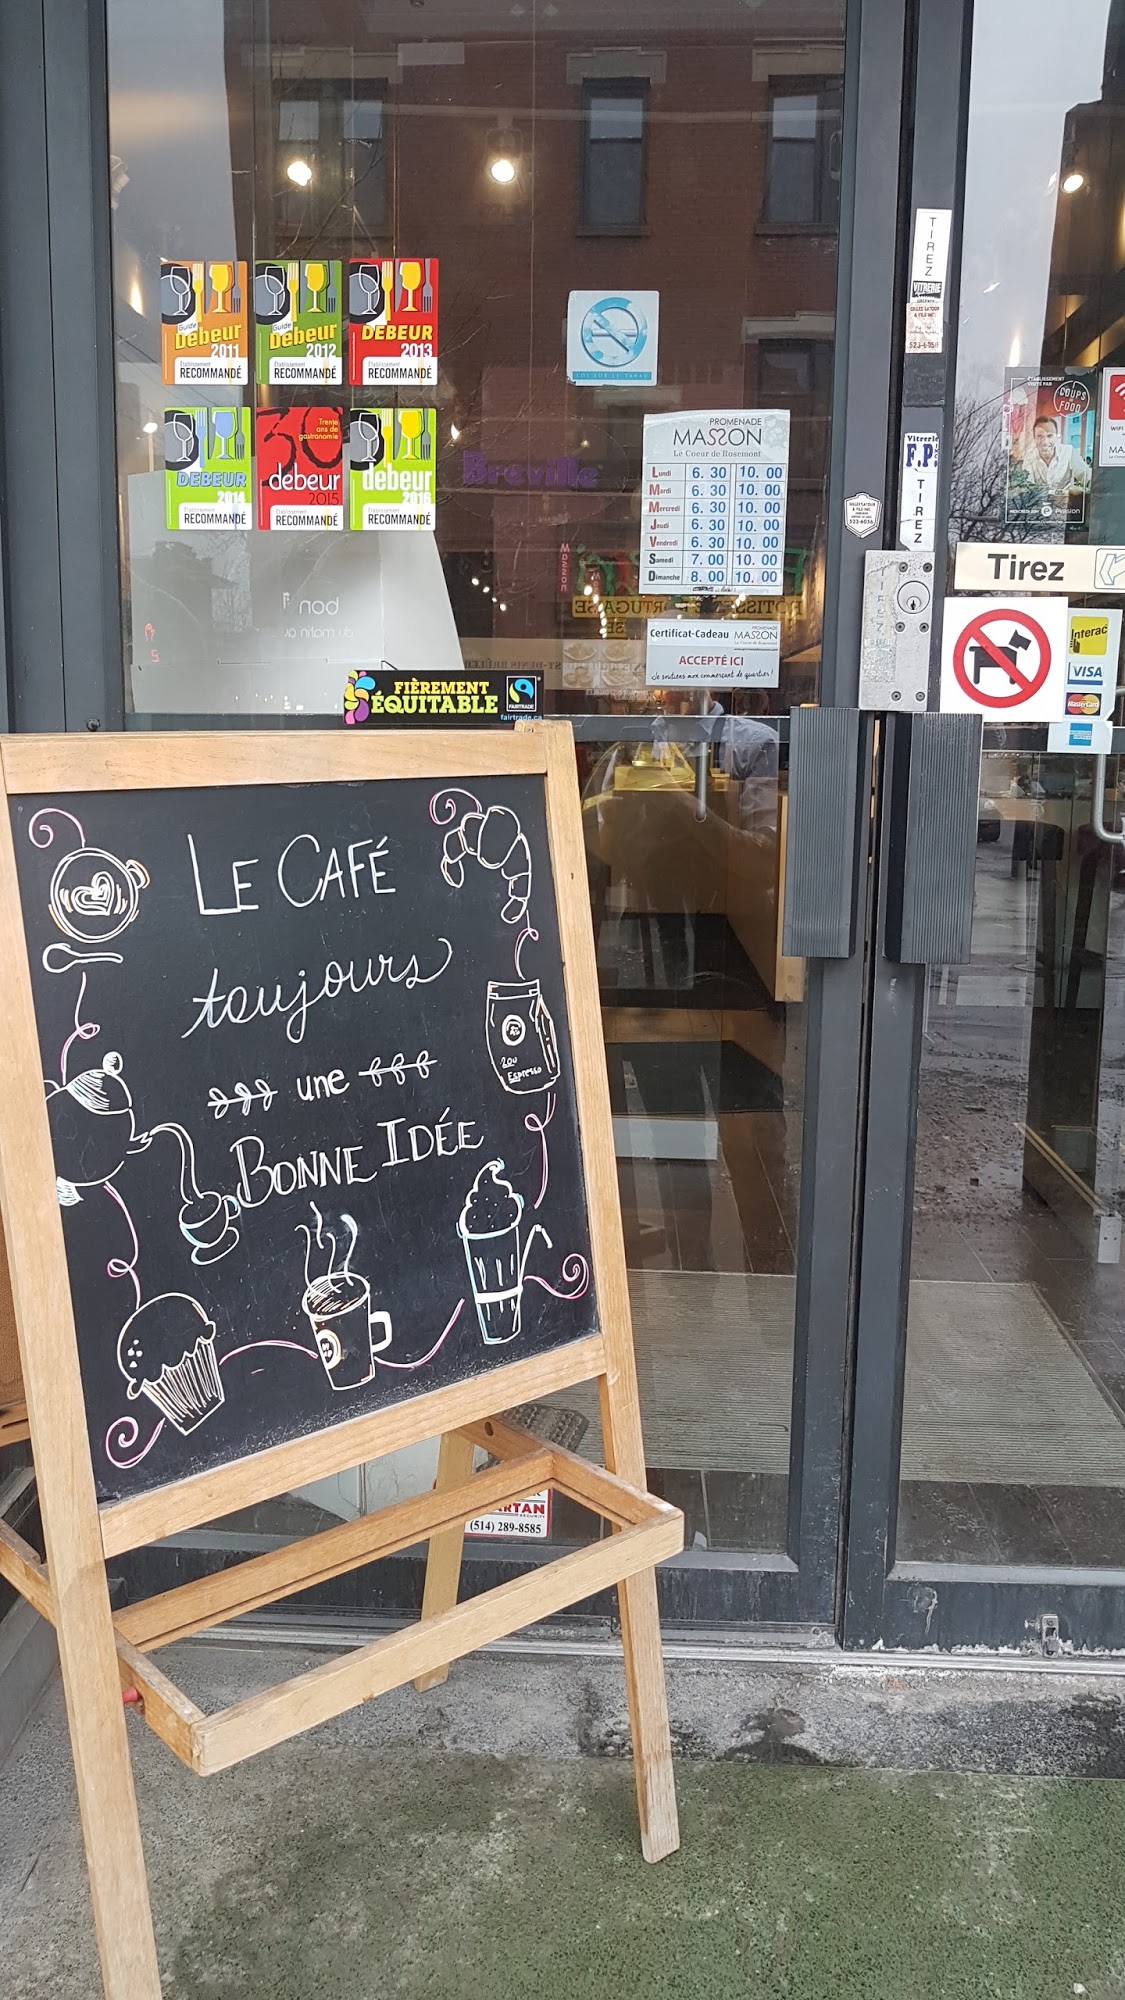 Guide
Debeur
2011
Établissement
RECOMMANDÉ
Guide
Debeur
2012
Établissement
RECOMMANDÉ
DEBEUR
2013
Établissement
RECOMMANDÉ
DEBEUR
2014
Établissement
RECOMMANDÉ
30
Trente
ans de
gastronomie
debeur
2015
Établissement
RECOMMANDÉ
debeur
2016
Établissement
RECOMMANDÉ
LOI SUR LE TABAC
Breville
PROMENADE
MASSON
Le Coeur de Rosemont
Lundi 6. 30 10. 00
Mardi 6. 30 10. 00
Mercredi 6. 30 10. 00
Jeudi 6. 30 10. 00
Vendredi 6. 30 10. 00
Samedi 7. 00 10. 00
Dimanche 8. 00 10. 00
Certificat-Cadeau PROMENADE MASSON
ACCEPTÉ ICI
Je soutiens mon commerçant de quartier!
FIÈREMENT
ÉQUITABLE
FAIRTRADE
fairtrade.ca
TIREZ
VITRERIE
GILLES LATOUR
& FILS INC.
523-6056
Vitrerie
F.P.
TIREZ
523-6056
ÉTABLISSEMENT
VISITÉ PAR
COUPS
FOOD
WIFI
Tirez
Interac
VISA
MasterCard
LE CAFÉ
toujours
une
BONNE IDÉE
200
Espresso
(514) 289-8585